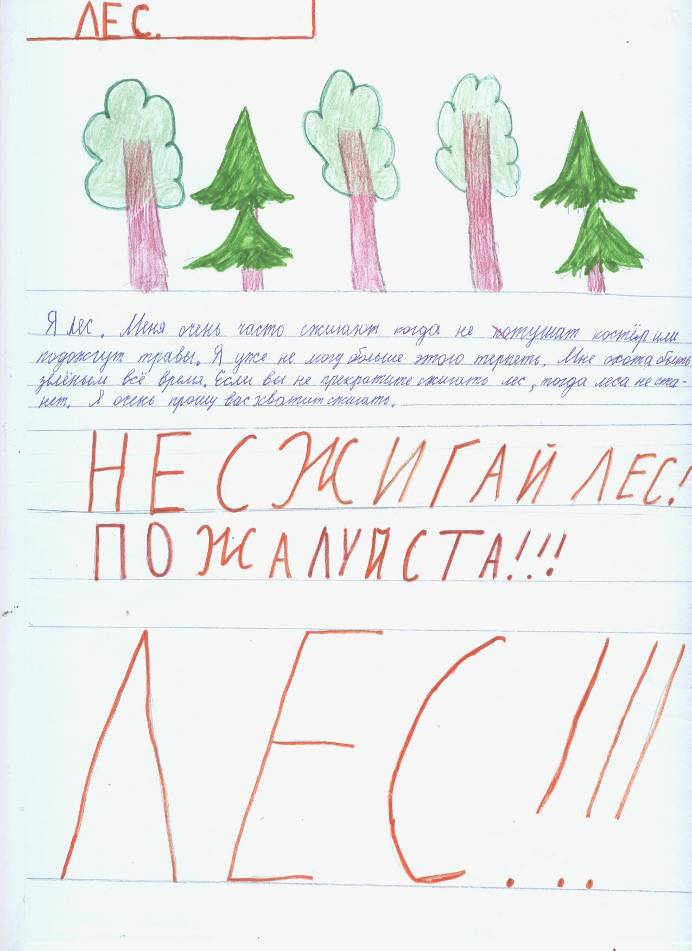 ЛЕС.
Я лес. Меня очень часто сжигают когда не потушат костёр или
подожгут травы. Я уже не могу больше этого терпеть. Мне охота быть
зелёным всё время. Если вы не прекратите сжигать лес, тогда леса не ста-
нет. Я очень прошу вас хватит сжигать.
НЕ СЖИГАЙ ЛЕС!
ПОЖАЛУЙСТА!!!
ЛЕС!!!